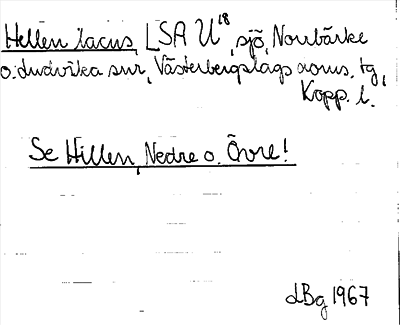 Hellen lacus, LSA U¹⁸, sjö, Norrbärke
o. Ludvika snr, Västerbergslags doms. tg,
Kopp. l.
Se Hillen, Nedre o. Övre!
LBg 1967